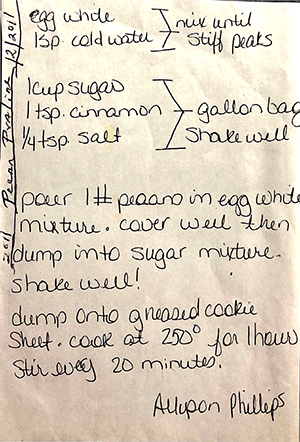 egg white
1sp. cold water
mix until
stiff peaks
1cup sugar
1tsp. cinnamon
1/4tsp. salt
gallon bag
Shake well
pour 1# pecans in egg white
mixture. cover well then
dump into sugar mixture.
shake well!
dump onto greased cookie
sheet. cook at 250° for 1hour
Stir every 20 minutes.
Phillips
12/2011
Pecan
2011